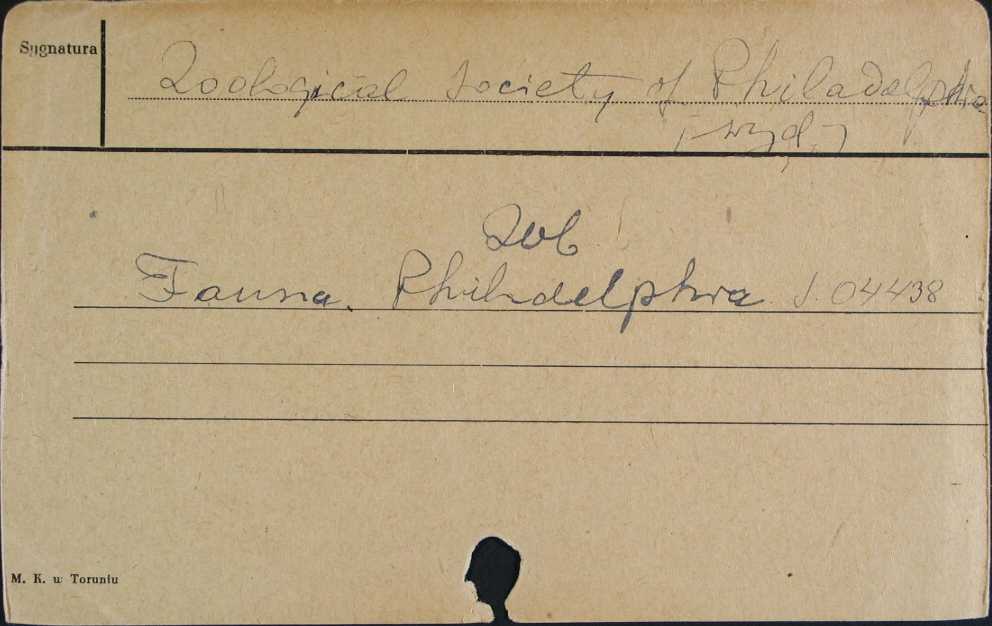 Sygnatura
Zoological Society of Philadelphia
[wyd.]
Zob
Fauna. Philadelphia J. 04438
M. K. w Toruniu